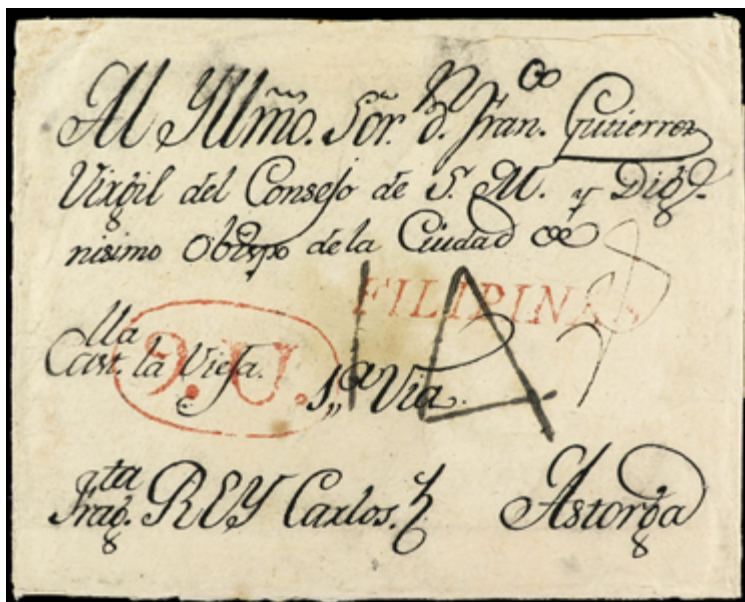 Al Yllm̃o. Sor. Dn. Franco. Gutierrez
Virgil del Consejo de S. M. y Dig-
nisimo Obispo de la Ciudad de
FILIPINAS
14
Castlla. la Vieja.
1,,a Via.
Fragta. REY Carlos.
Astorga